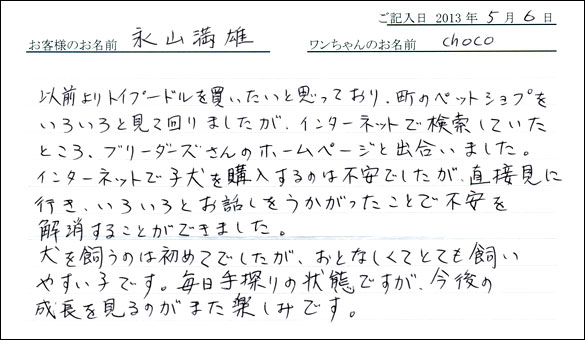 ご記入日 2013 年 5 月 6 日
お客様のお名前 永山満雄 ワンちゃんのお名前 choco
以前よりトイプードルを買いたいと思っており、町のペットショプを
いろいろと見て回りましたが、インターネットで検索していた
ところ、ブリーダーズさんのホームページと出合いました。
インターネットで子犬を購入するのは不安でしたが、直接見に
行き、いろいろとお話しをうかがったことで不安を
解消することができました。
犬を飼うのは初めてでしたが、おとなしくてとても飼い
やすい子です。毎日手探りの状態ですが、今後の
成長を見るのがまた楽しみです。